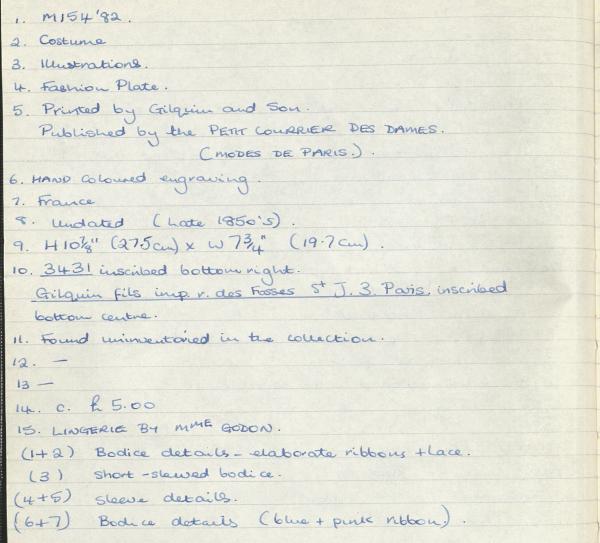 1. M154'82.
2. Costume
3. Illustrations.
4. Fashion Plate.
5. Printed by Gilquin and Son.
Published by the PETIT COURRIER DES DAMES.
(MODES DE PARIS.).
6. HAND coloured engraving.
7. France
8. Undated (Late 1850's).
9. H 10 7/8" (27.5cm) x W 7 3/4" (19.7cm).
10. 3431 inscribed bottom right.
Gilquin fils imp. r. des Fosses St J. 3. Paris. inscribed
bottom centre.
11. Found uninventoried in the collection.
12. —
13 —
14. c. £ 5.00
15. LINGERIE BY MME GODON.
(1+2) Bodice details - elaborate ribbons + lace.
(3) Short-sleeved bodice.
(4+5) Sleeve details.
(6+7) Bodice details (blue + pink ribbon).